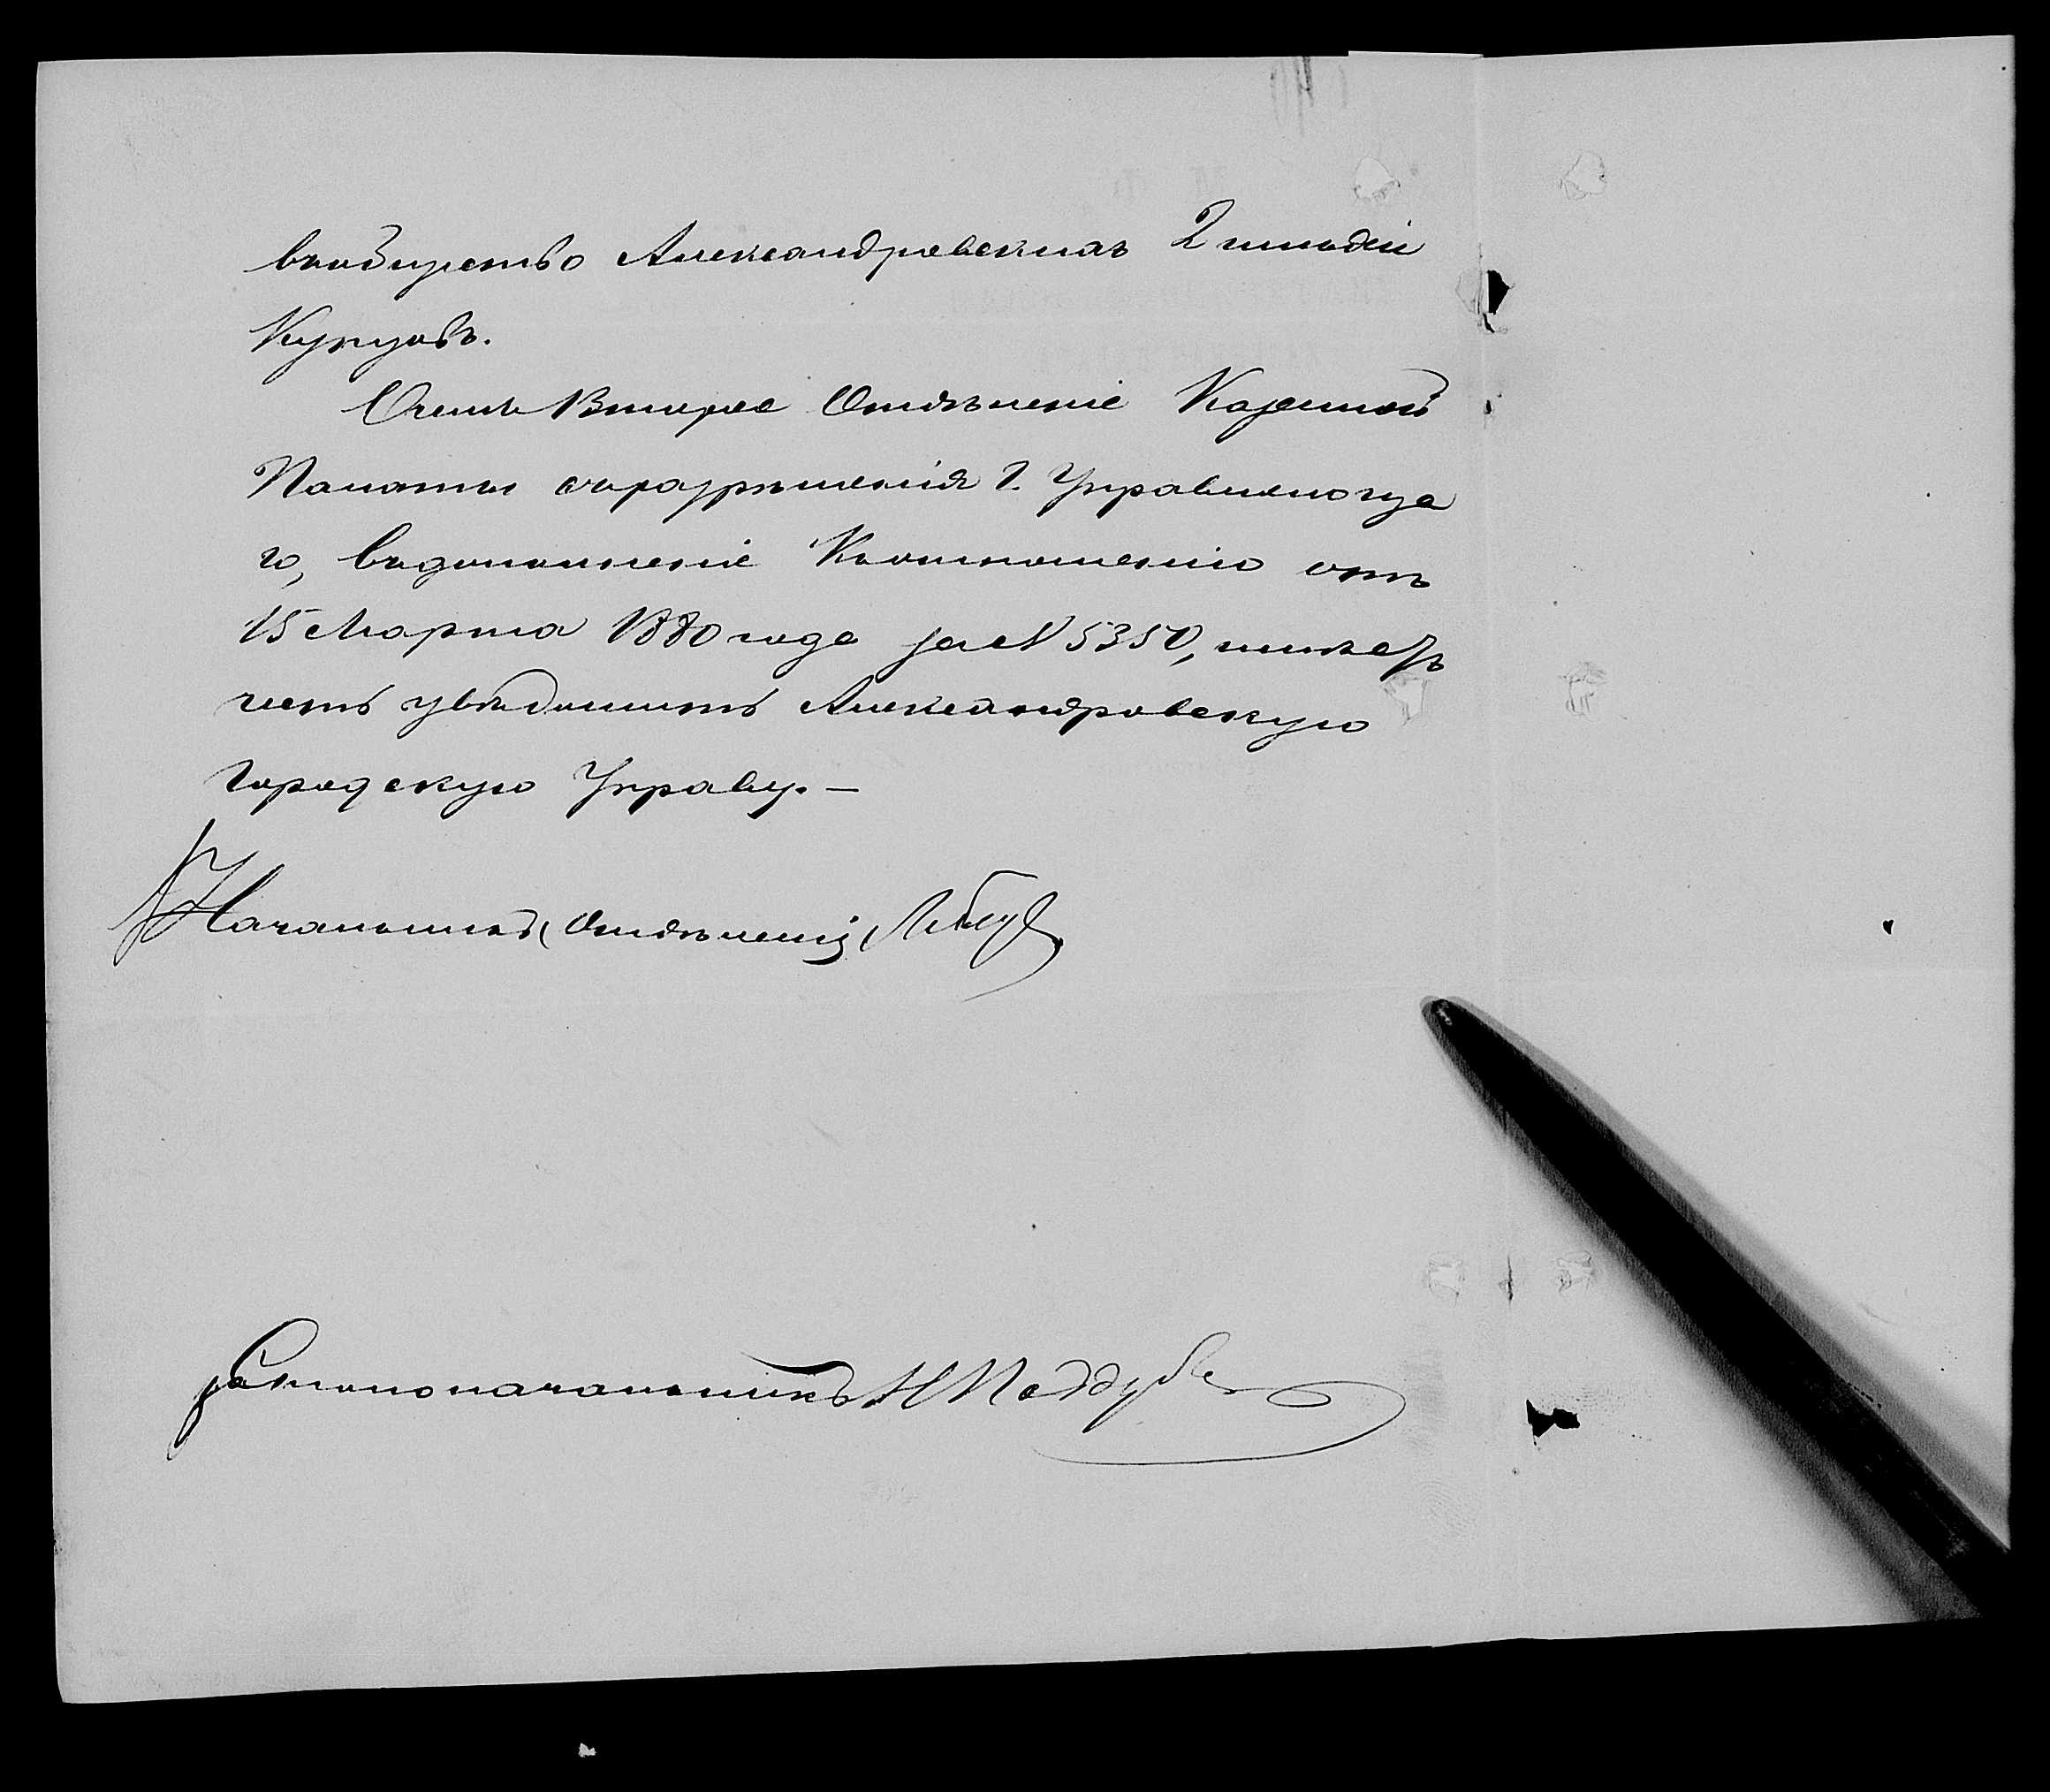 въобщество Александровскихъ 2 гильдіи
Купцовъ.
Очемъ Второе Отдѣленіе Казенной
Палаты съразрѣшенія Г. Управляюща
го, въдополненіе Къотношенію отъ
15 Марта 1880 года за N 5350, имѣетъ
честь увѣдомить Александровскую
Городскую Управу. —
Начальникъ Отдѣленія
Столоначальникъ Н Поддуб